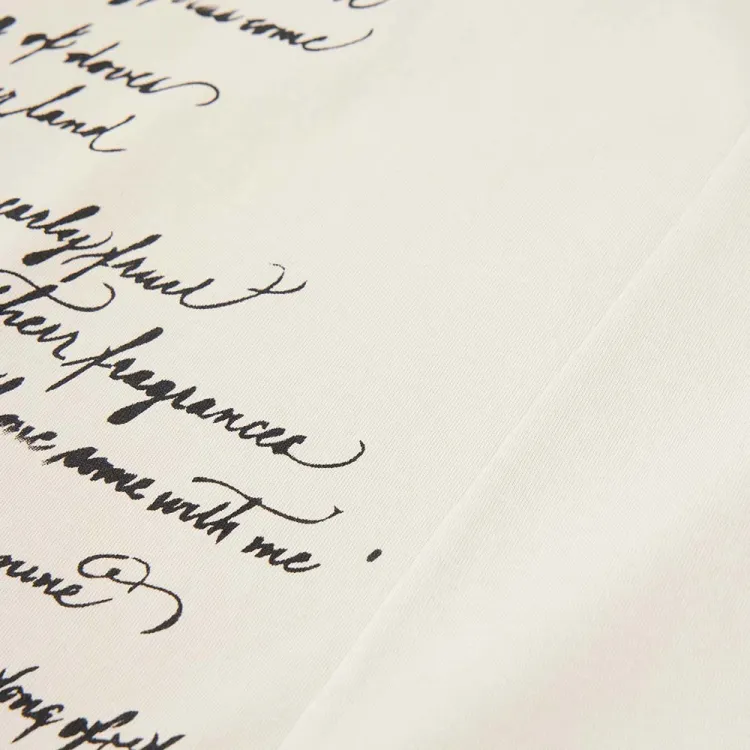 has come
of doves
land
early fruit
their fragrances
come with me
mine
Song of